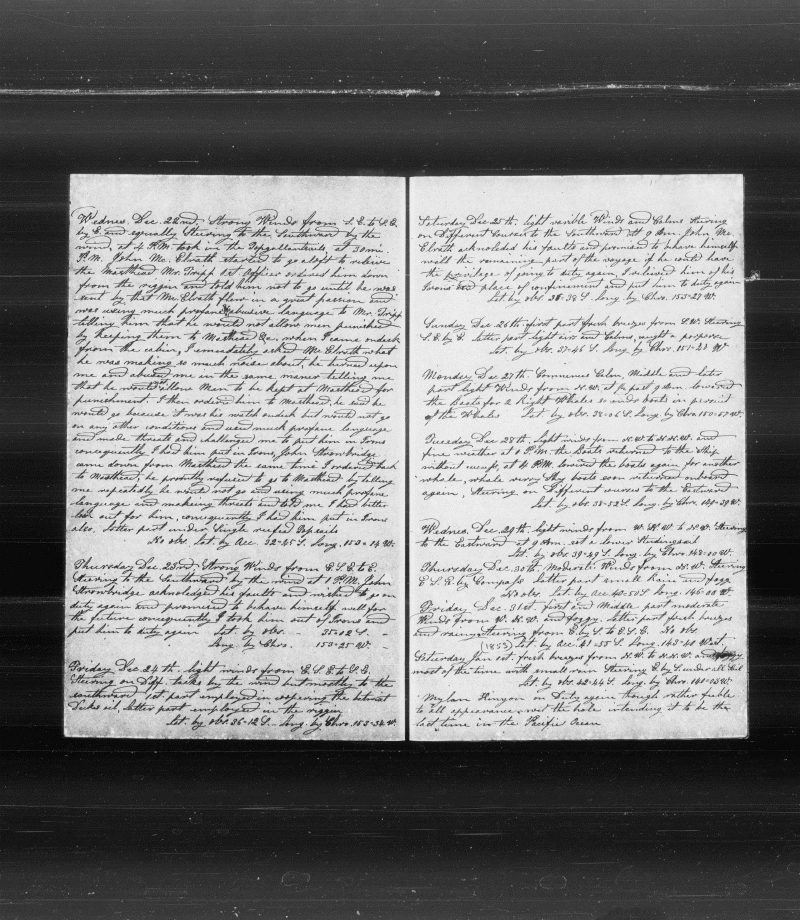 Wednes. Dec 22nd, Strong Winds from S.E. to S.E.
by E. and equally Steering to the Southward by the
wind, at 4 P.M. took in the Topgallantsails, at 30 mi.
P.M. John Mc. Elrath started to go aloft to relieve
the Masthead Mr. Tripp 1st. Officer ordered him down
from the riggen and told him not to go until he was
sent by that Mc. Elrath flew in a great passion and
was using much profane & abusive language to Mr. Tripp
telling him that he would not allow men punished
by keeping them to Masthead &c, when I came ondeck
from the cabin, I immediately asked Mc. Elrath what
he was making so much noise about, he turned upon
me and abused me in the same maner telling me
that he would not allow Men to be kept at Masthead for
punishment. I then ordered him to Masthead, he said he
would go because it was his watch ondeck but would not go
on any other conditions and used much profane language
and made threats and challenged me to put him in Irons
concequently I had him put in Irons, John Strowbridge
came down from Masthead the same time I ordered back
to Masthead, he promtly refused to go to Masthead by telling
me repeatedly he would not go and using much profane
language and makeing threats and told me I had better
look out for him, concequently I had him put in Irons
also. Latter part under single reefed Topsails
No obs. Lat. by Acc. 32-45 S. Long. 153-14 W.
Thursday Dec 23rd, Strong Winds from E.S.E. to E.
Steering to the Southward by the wind at 1 P.M. John
Strowbridge acknoledged his faults and wished to go on
duty again and promised to behave himself well for
the future concequently I took him out of Irons and
put him to duty again Lat. by obs. - - 35-02 S. -
Long. by Chro. - 153-25 W. -
Friday Dec 24th. light winds from E.S.E. to S.E.
Steering on Diff. tacks by the wind but mostly to the
southward 1st. part employed in coopering the betwixt
Decks oil, latter part employed in the riggin
Lat. by obs. 36-12 S. Long. by Chro. 153-34 W.
Saturday Dec 25th. light varible Winds and Calms Steering
on Different Courses to the Southward at 9 Am. John Mc.
Elrath acknoleded his faults and promised to behave himself
well the remaining part of the voyage if he could have
the privilage of going to duty again, I relieved him of his
Irons and place of confinement and put him to duty again
Lat. by obs. 38-38 S. Long. by Chro. 153-27 W.
Sunday Dec 26th. first part fresh breezes from S.W. Steering
S.E. by E. latter part light airs and Calms, caught a porpoise
Lat. by obs. 37-46 S. Long by Chro. 151-23 W.
Monday Dec 27th. Commences Calm, Middle and later
part light Winds from N.W. at ½ past 9 Am. lowered
the Boats for 2 Right Whales sends boats in persuit
of the Whales Lat. by obs. 38-06 S. Long. by Chro. 150-57 W.
Tuesday Dec 28th. Light winds from N.W. to N.N.W. and
fine wether at 1 P.M. the Boats returned to the Ship
without sucess, at 4 P.M. lowered the boats again for another
whale, whale verry Shy boats soon returned onboard
again, Steering on different courses to the Eastward
Lat. by obs. 38-53 S. Long. by Chro. 149-39 W.
Wednes. Dec 29th. light winds from W.N.W. to N.W. Steering
to the Eastward at 9 Am. set a lower Studingsail
Lat. by obs. 39-49 S. Long. by Chro. 148-00 W.
Thursday Dec. 30th. Moderate Winds from N.W. Steering
E.S.E. by Compass latter part small Rain and fogg
No obs. Lat. by Acc. 40-50 S. Long. 146-00 W.
Friday Dec. 31st. first and Middle part moderate
Winds from W.N.W. and foggy. latter part fresh breezes
and rainy Steering from E. by S. to E.S.E. No obs.
(1853) Lat. by Acc. 41-55 S. Long. 143-40 West
Saturday Jan 1st. fresh breezes from N.W. to N.N.W. and foggy
most of the time with small rain Steering E. by S. under all Sail
Lat. by obs. 42-44 S. Long. by Chro. 141-03 W.
Mylan Kinyon on Duty again though rather feeble
to all appearance, wet the hole intending it to be the
last time in the Pacific Ocean